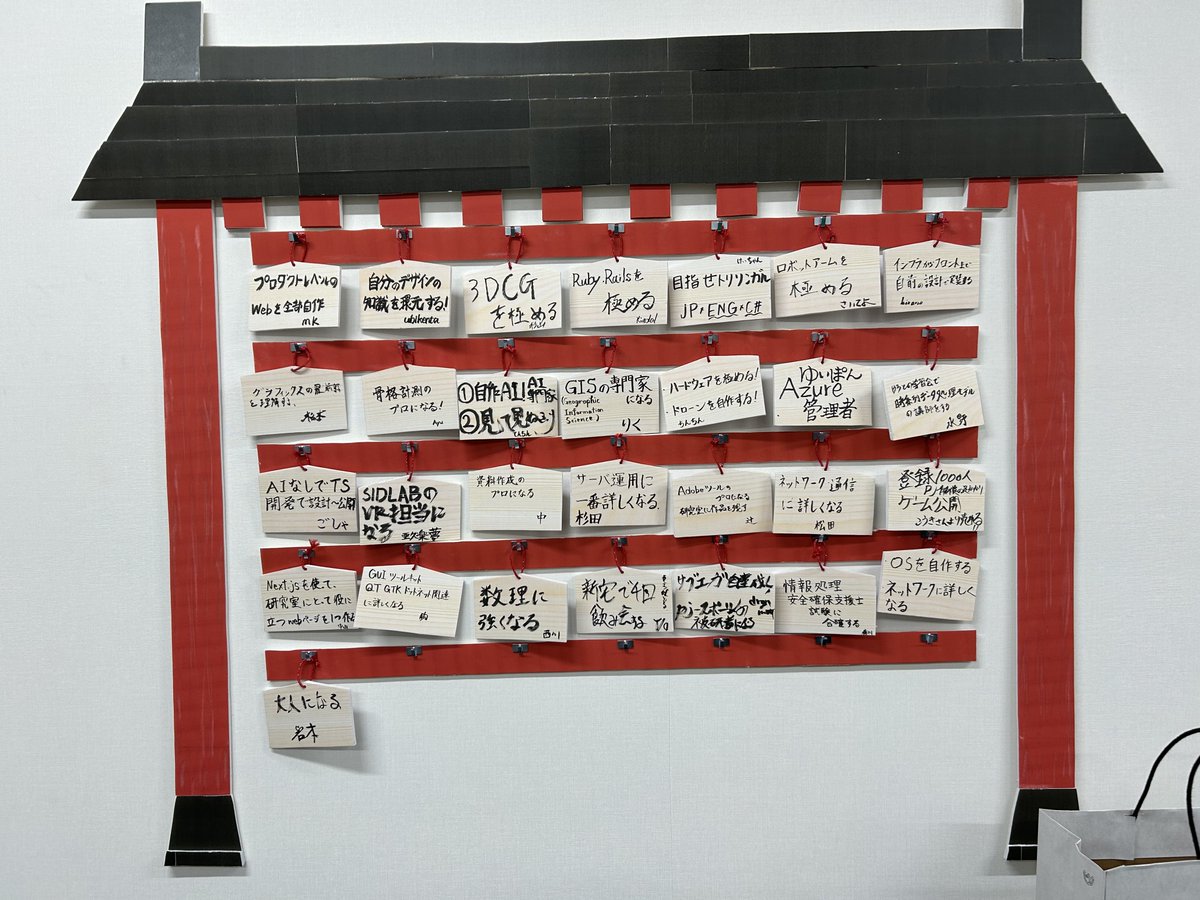 プロダクトレベルの
Webを全部自作
MK
自分のデザインの
知識を還元する!
ubikenta
3DCG
を極める
Ruby.Railsを
極める
けいちゃん
目指せトリリンガル
JP×ENG×C#
ロボットアームを
極める
さいてょ
インフラからフロントまで
自前の設計で実装する
hirano
グラフィックスの
を理解する。
松本
骨格計測の
プロになる!
①自作AI
②見て見ぬふり
GISの専門家
(Geographic
Information
Science)
になる
りく
・ハードウェアを極める!
・ドローンを自作する!
ちんちん
ゆいぽん
Azure
管理者
の講師をする
永野
AIなしでTS
開発で設計〜公開
ごしゃ
SIDLABの
VR担当に
なる
資料作成の
プロになる
中
サーバ運用に
一番詳しくなる。
杉田
Adobeツールの
プロになる
研究室に作品を残す
辻
ネットワーク通信
に詳しくなる
松田
登録1000人
ゲーム公開
Next.jsを使って、
研究室にとって役に
立つwebページを1つ作る
GUIツールキット
QT GTK ドットネット関連
に詳しくなる
数理に
強くなる
西川
新宅で4日
飲み会する
情報処理
安全確保支援士
試験に
合格する
OSを自作する
ネットワークに詳しく
なる
大人になる
岩本